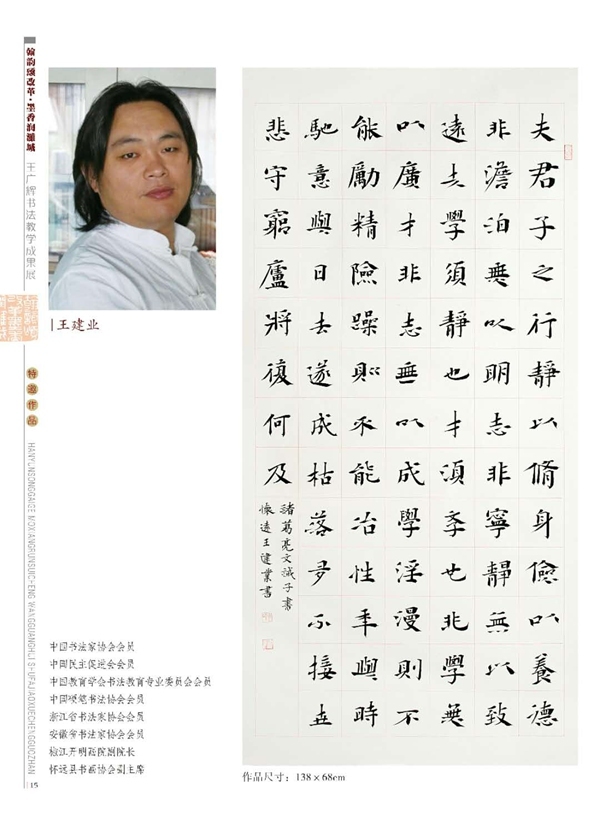 翰韵颂改革·墨香润濉城
王广辉书法教学成果展
特邀作品
HANYUNSONGGAIGE MOXIANGRUNSUICHENG WANGGUANGHUI SHUFAJIAOXUECHENGGUOZHAN
15
王建业
中国书法家协会会员
中国民主促进会会员
中国教育学会书法教育专业委员会会员
中国硬笔书法协会会员
浙江省书法家协会会员
安徽省书法家协会会员
椒江开明画院副院长
怀远县书画协会副主席
夫君子之行靜以脩身儉以養德
非澹泊無以明志非寧靜無以致
遠夫學須靜也才須斈也非學無
以廣才非志無以成學淫漫則不
能勵精險躁則不能冶性年與時
馳意與日去遂成枯落多不接世
悲守窮廬將復何及
諸葛亮文誡子書
懷遠王建業書
作品尺寸：138×68cm